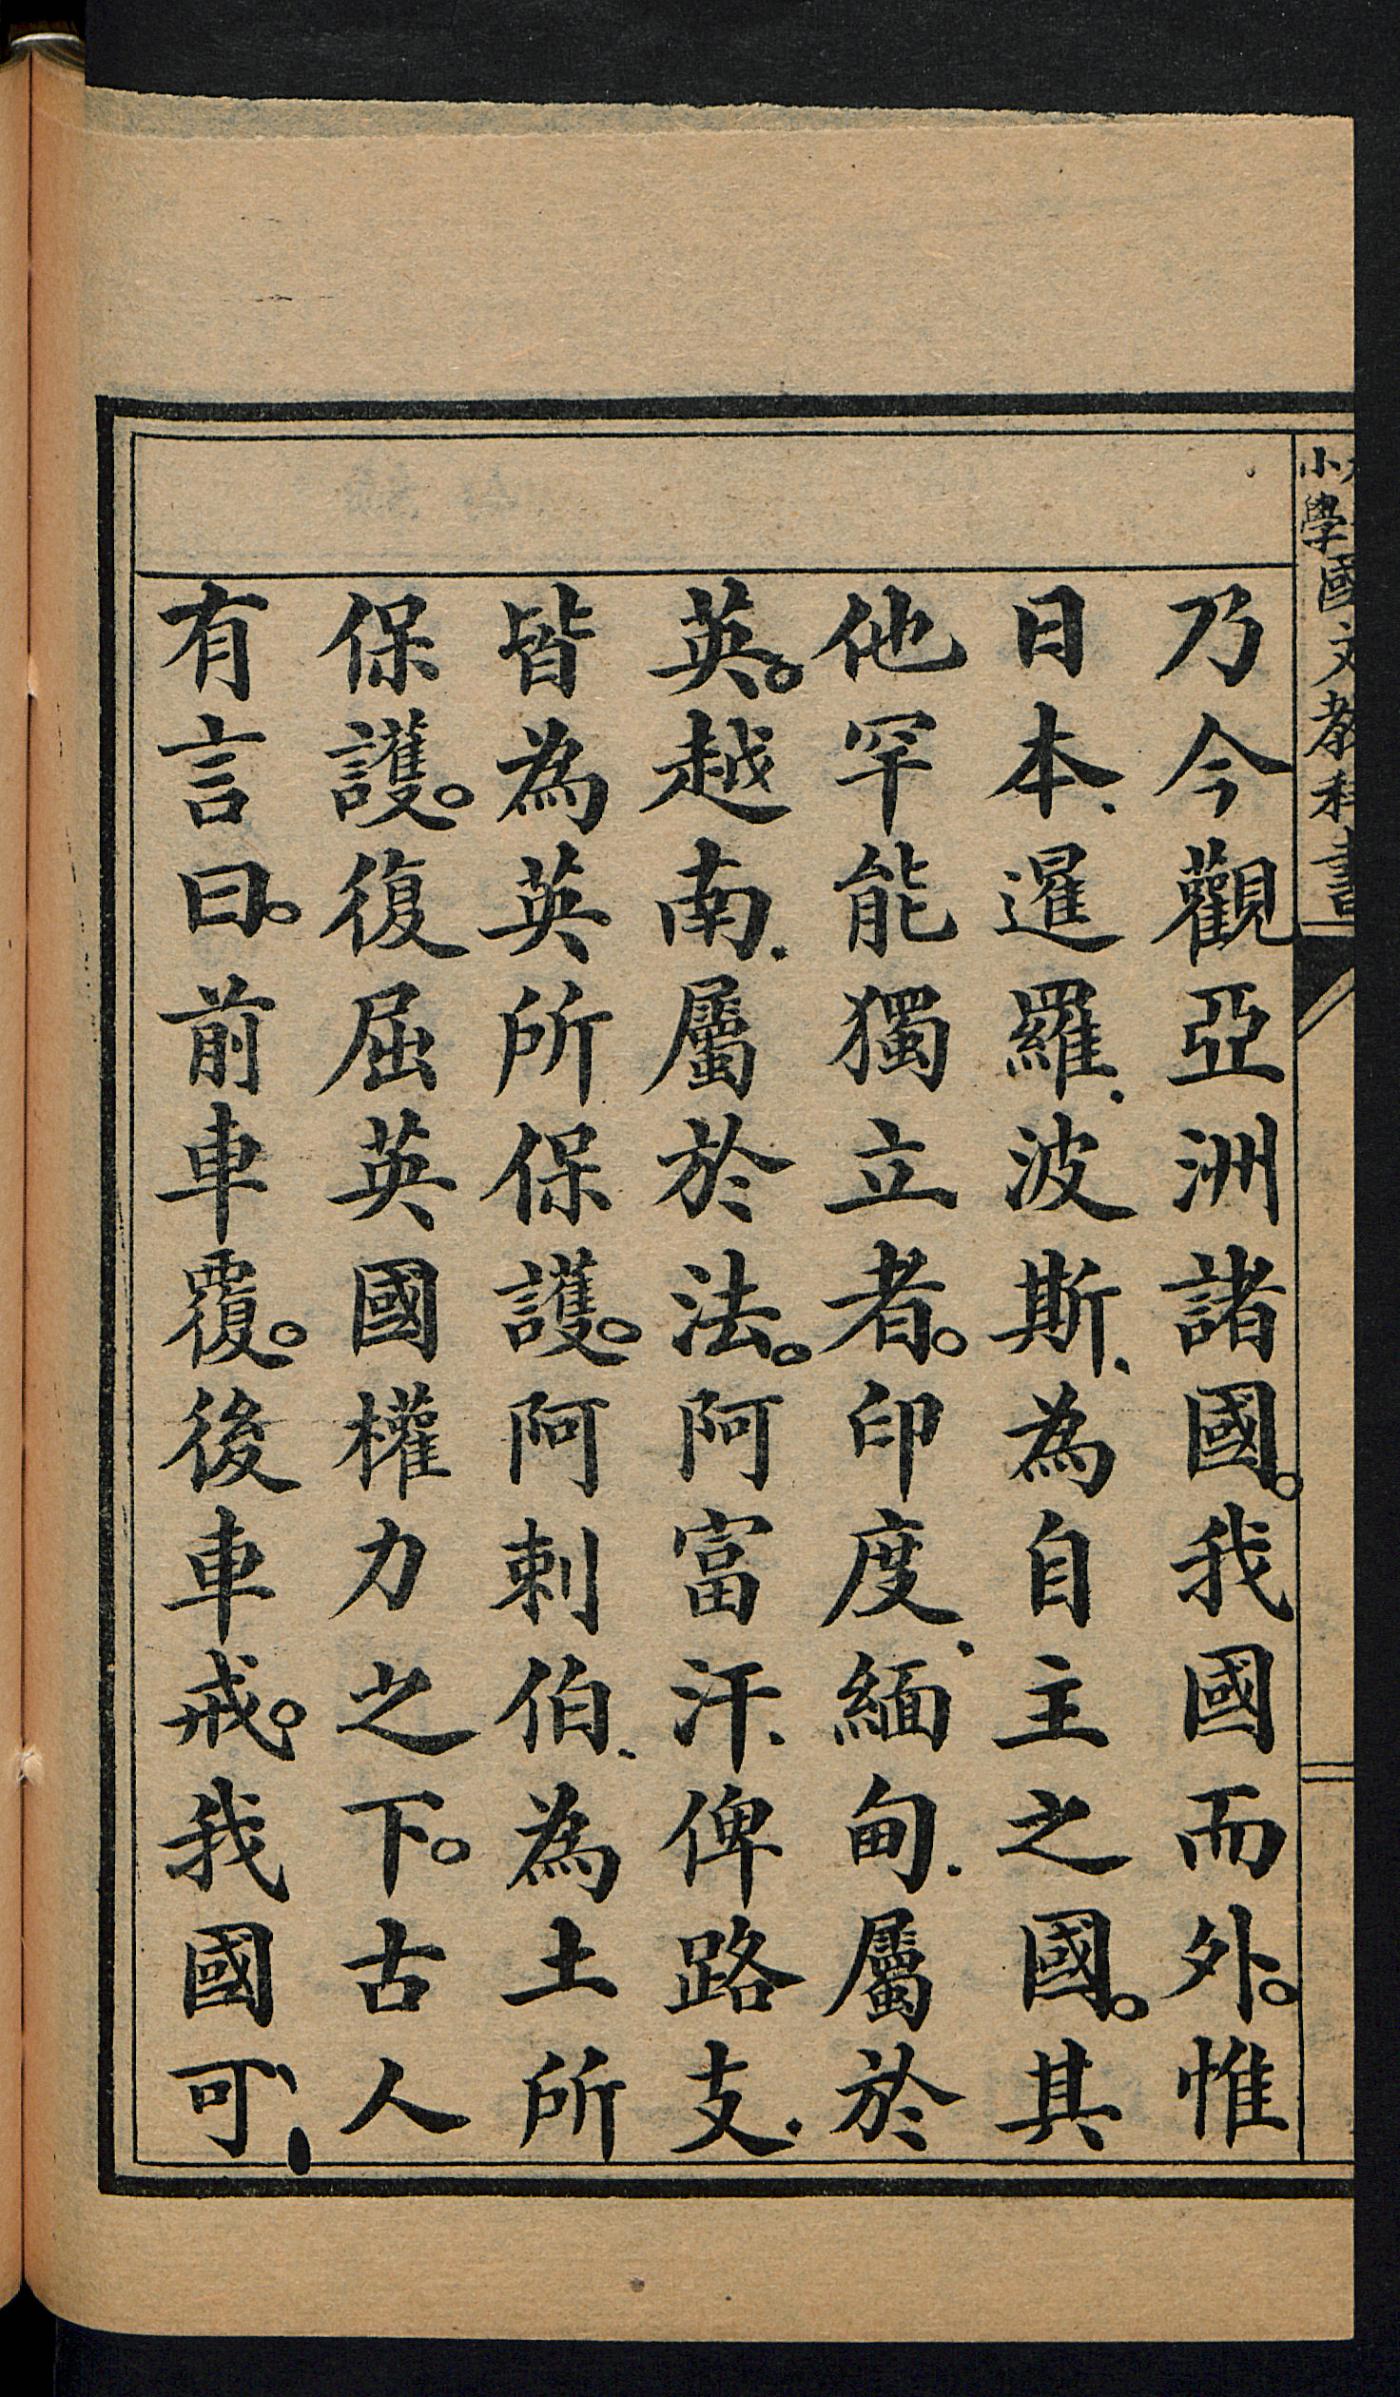 小學國文教科書
乃今觀亞洲諸國。我國而外。惟
日本、暹羅、波斯、為自主之國。其
他罕能獨立者。印度、緬甸、屬於
英。越南、屬於法。阿富汗、俾路支、
皆為英所保護。阿剌伯、為土所
保護。復屈英國權力之下。古人
有言曰。前車覆。後車戒。我國可